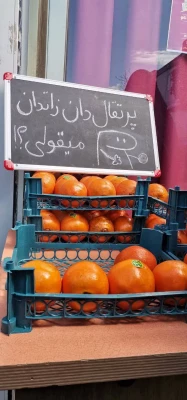 پرتقال دان زاتدان
میقولی؟!